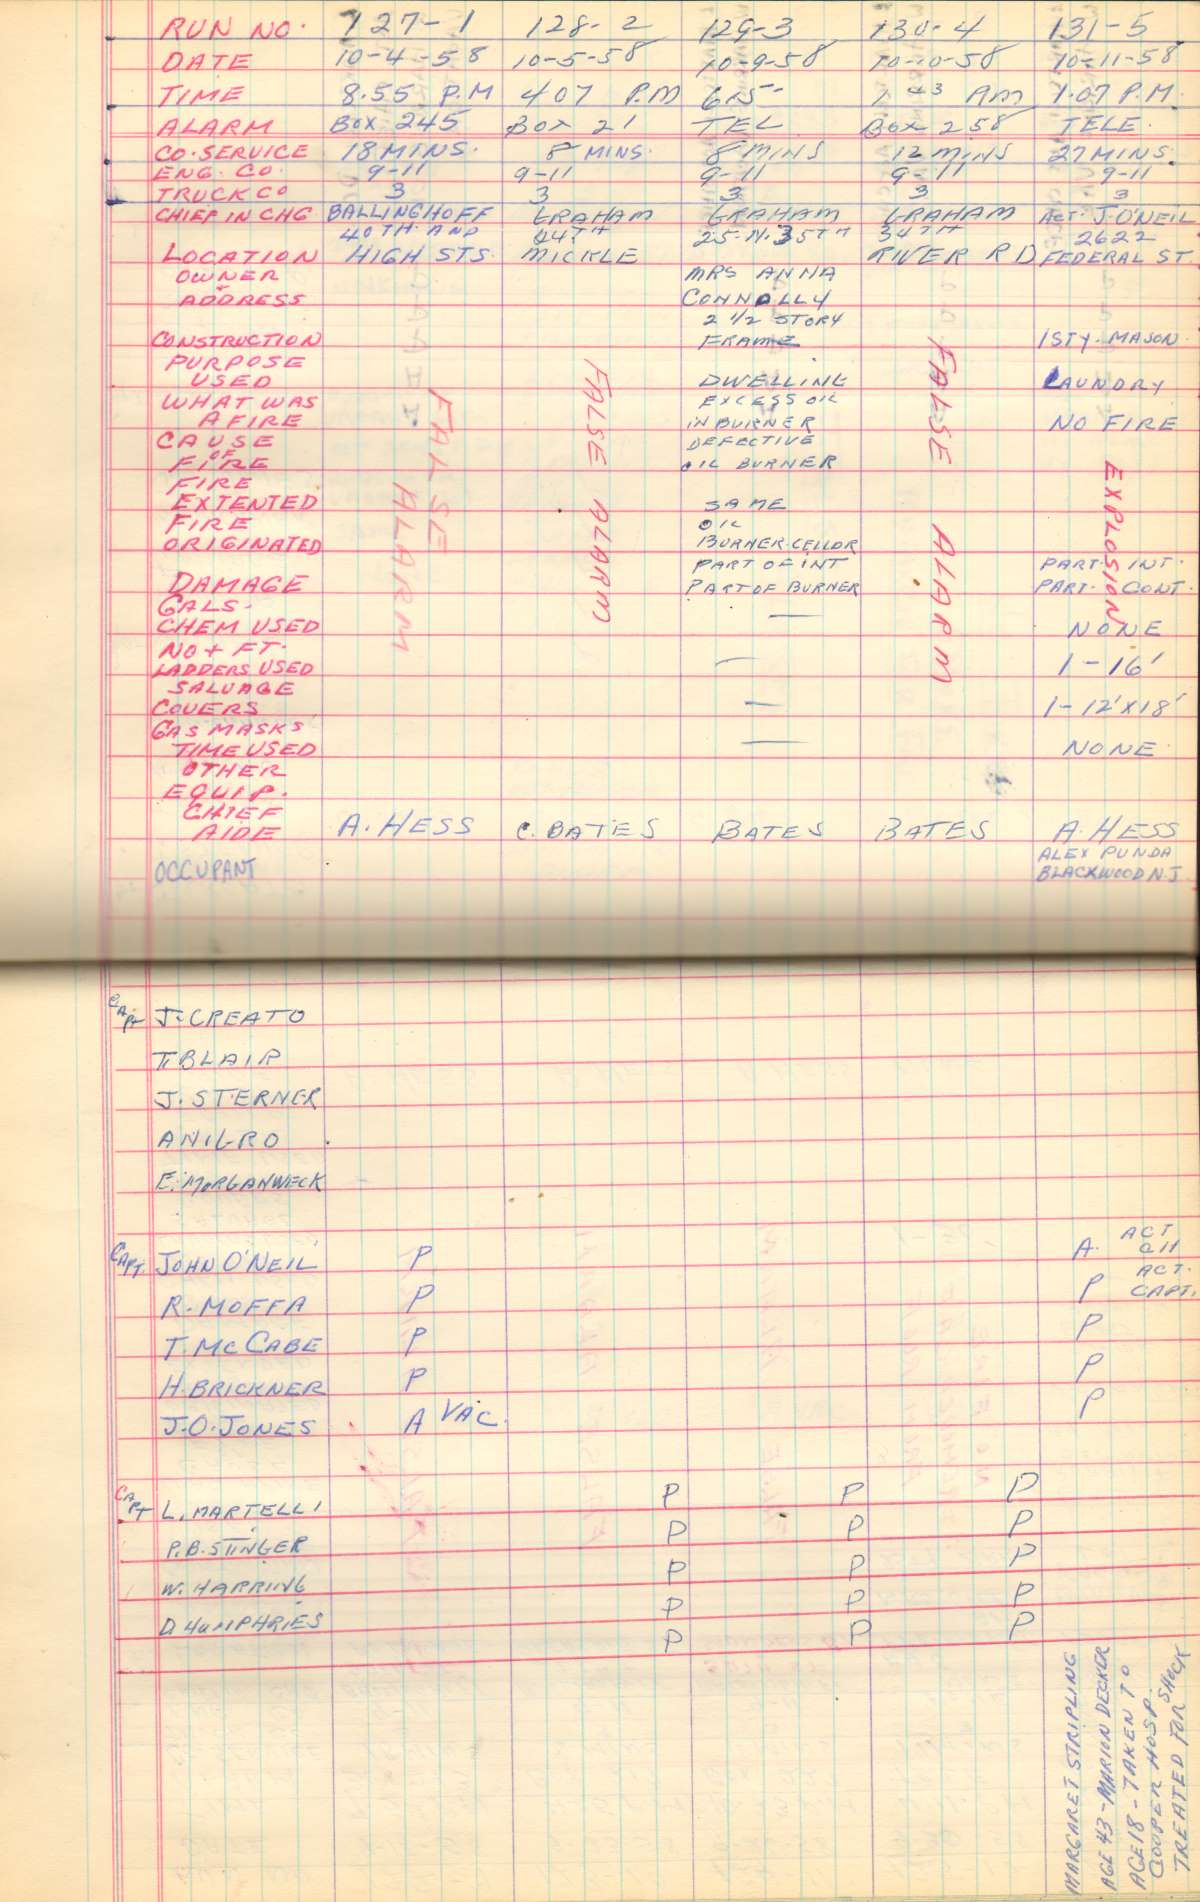 RUN NO. 127-1 128-2 129-3 130-4 131-5
DATE 10-4-58 10-5-58 10-9-58 10-10-58 10-11-58
TIME 8.55 P.M 4 07 P.M 6 15 1 43 AM 1.07 P.M.
ALARM BOX 245 BOX 21 TEL BOX 258 TELE.
CO. SERVICE 18 MINS. 8 MINS. 8 MINS 12 MINS 27 MINS.
ENG. CO. 9-11 9-11 9-11 9-11 9-11
TRUCK CO 3 3 3 3 3
CHIEF IN CHG BALLINGHOFF GRAHAM GRAHAM GRAHAM ACT. J. O'NEIL
40TH AND 25-N. 35TH 34TH 2622
LOCATION HIGH STS. MICKLE RIVER RD FEDERAL ST.
OWNER MRS ANNA
ADDRESS CONNOLLY
2 1/2 STORY
CONSTRUCTION FRAME 1 STY. MASON
PURPOSE
USED DWELLING LAUNDRY
WHAT WAS EXCESS OIL
A FIRE IN BURNER NO FIRE
CAUSE DEFECTIVE
OF
FIRE OIL BURNER
FIRE
EXTENTED SAME
FIRE OIL
ORIGINATED BURNER. CELLOR
PART OF INT PART. INT.
DAMAGE PART OF BURNER PART. CONT.
GALS.
CHEM USED — NONE
NO + FT.
LADDERS USED — 1-16'
SALVAGE
COVERS — 1-12'X18'
GAS MASKS
TIME USED — NONE
OTHER
EQUIP.
CHIEF
AIDE A. HESS C. BATES BATES BATES A. HESS
ALEX PUNDA
OCCUPANT BLACKWOOD N.J
FALSE
ALARM
FALSE ALARM
FALSE ALARM
EXPLOSION
CAPT J. CREATO
T. BLAIR
J. STERNER
A NIGRO
E. MORGANWECK
CAPT. JOHN O'NEIL P A. ACT
CH
R. MOFFA P P ACT.
CAPT.
T. McCABE P P
H. BRICKNER P P
J.O. JONES A VAC. P
CAPT L. MARTELLI P P P
P.B. STINGER P P P
W. HARRING P P P
D. HUMPHRIES P P P
P P P
MARGARET STRIPLING
AGE 43 - MARION DECKER
AGE 18 - TAKEN TO
COOPER HOSP.
TREATED FOR SHOCK